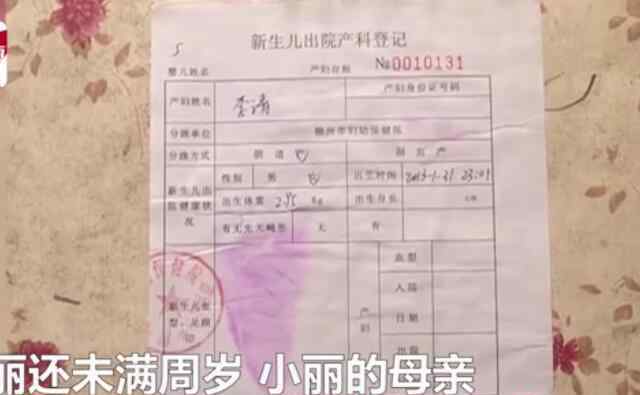 5
新生儿出院产科登记
婴儿姓名 产妇存根 №0010131
产妇姓名 李清 产妇身份证号码
分娩单位 柳州市妇幼保健院
分娩方式 阴道 剖宫产
新生儿出院健康状况 性别 男 出生时间 2013-1-31
出生体重 2.85 Kg 出生身长 cm
有无先天畸形 无 有
血型
新生儿 产妇 入院日期
出院
丽还未满周岁 小丽的母亲